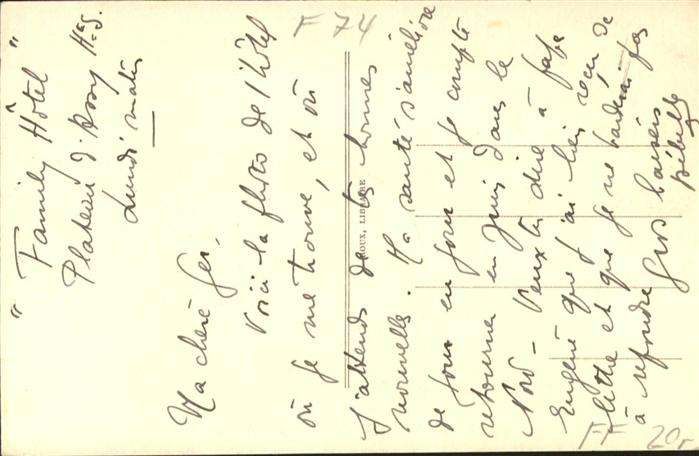 " Family Hôtel "
Plateau d'Assy Hte S.
Lundi matin
Ma chère Ger,
Voici la photo de l'hôtel
où je me trouve, et où
j'attends de tes bonnes
nouvelles. Ma santé s'améliore
de jour en jour et je compte
retourner en Juin dans le
Nord – Veux-tu dire à
Eugène que j'ai bien reçu
lettre et que je ne tarderai pas
à répondre Gros baisers
F 74
FF 20